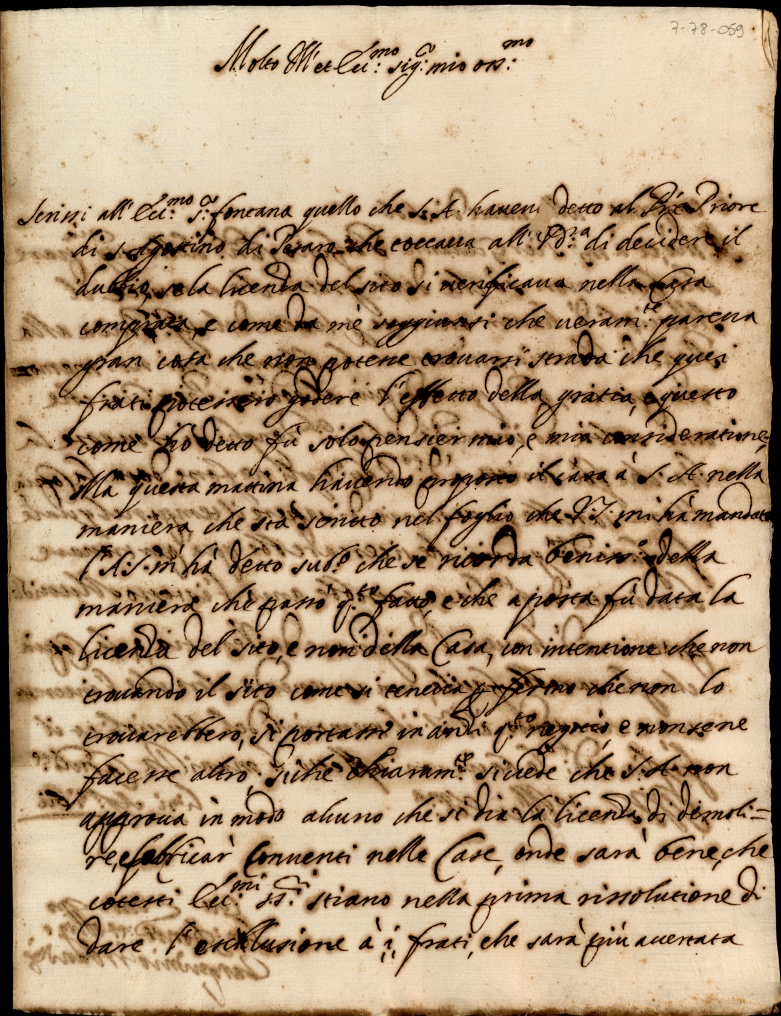 7-78-059
Molto Ill.e et Ecc.mo sig.r mio oss.mo
Scrissi all' Ecc.mo s.r fontana quello che S. A. haveva detto al P.re Priore
di s. Agostino di Pesaro che toccava all' di decidere il
dubbio, se la licenza del sito si verificava nella Casa
comprata, e come da mè soggiunsi che veram.te pareva
gran cosa che non potesse trovarsi strada che quei
frati potessero godere l'effetto della gratia, e questo
come hò detto fù solo pensier mio, e mia consideratione,
Mà questa mattina havendo proposto il caso à S. A. nella
maniera che stà scritto nel foglio che V. S. mi hà mandato
l'A. S. m'hà detto sub.o che se ricorda beniss.o della
maniera che passò q.to fatto, e che aposta fù data la
licenza del sito, e non della Casa, con intentione che non
trovando il sito come si teneva p. fermo che non lo
trovarebbero, si portasse in q.to negotio, e non sene
facesse altro. siche chiaram.te si vede che S. A. non
approva in modo alcuno che si dia la licenza di demoli=
re, e fabricar Conventi nelle Case, onde sarà bene, che
cotesti Ecc.mi ss.ri stiano nella prima rissolutione di
dare l'esclusione à i frati, che sarà più accertata